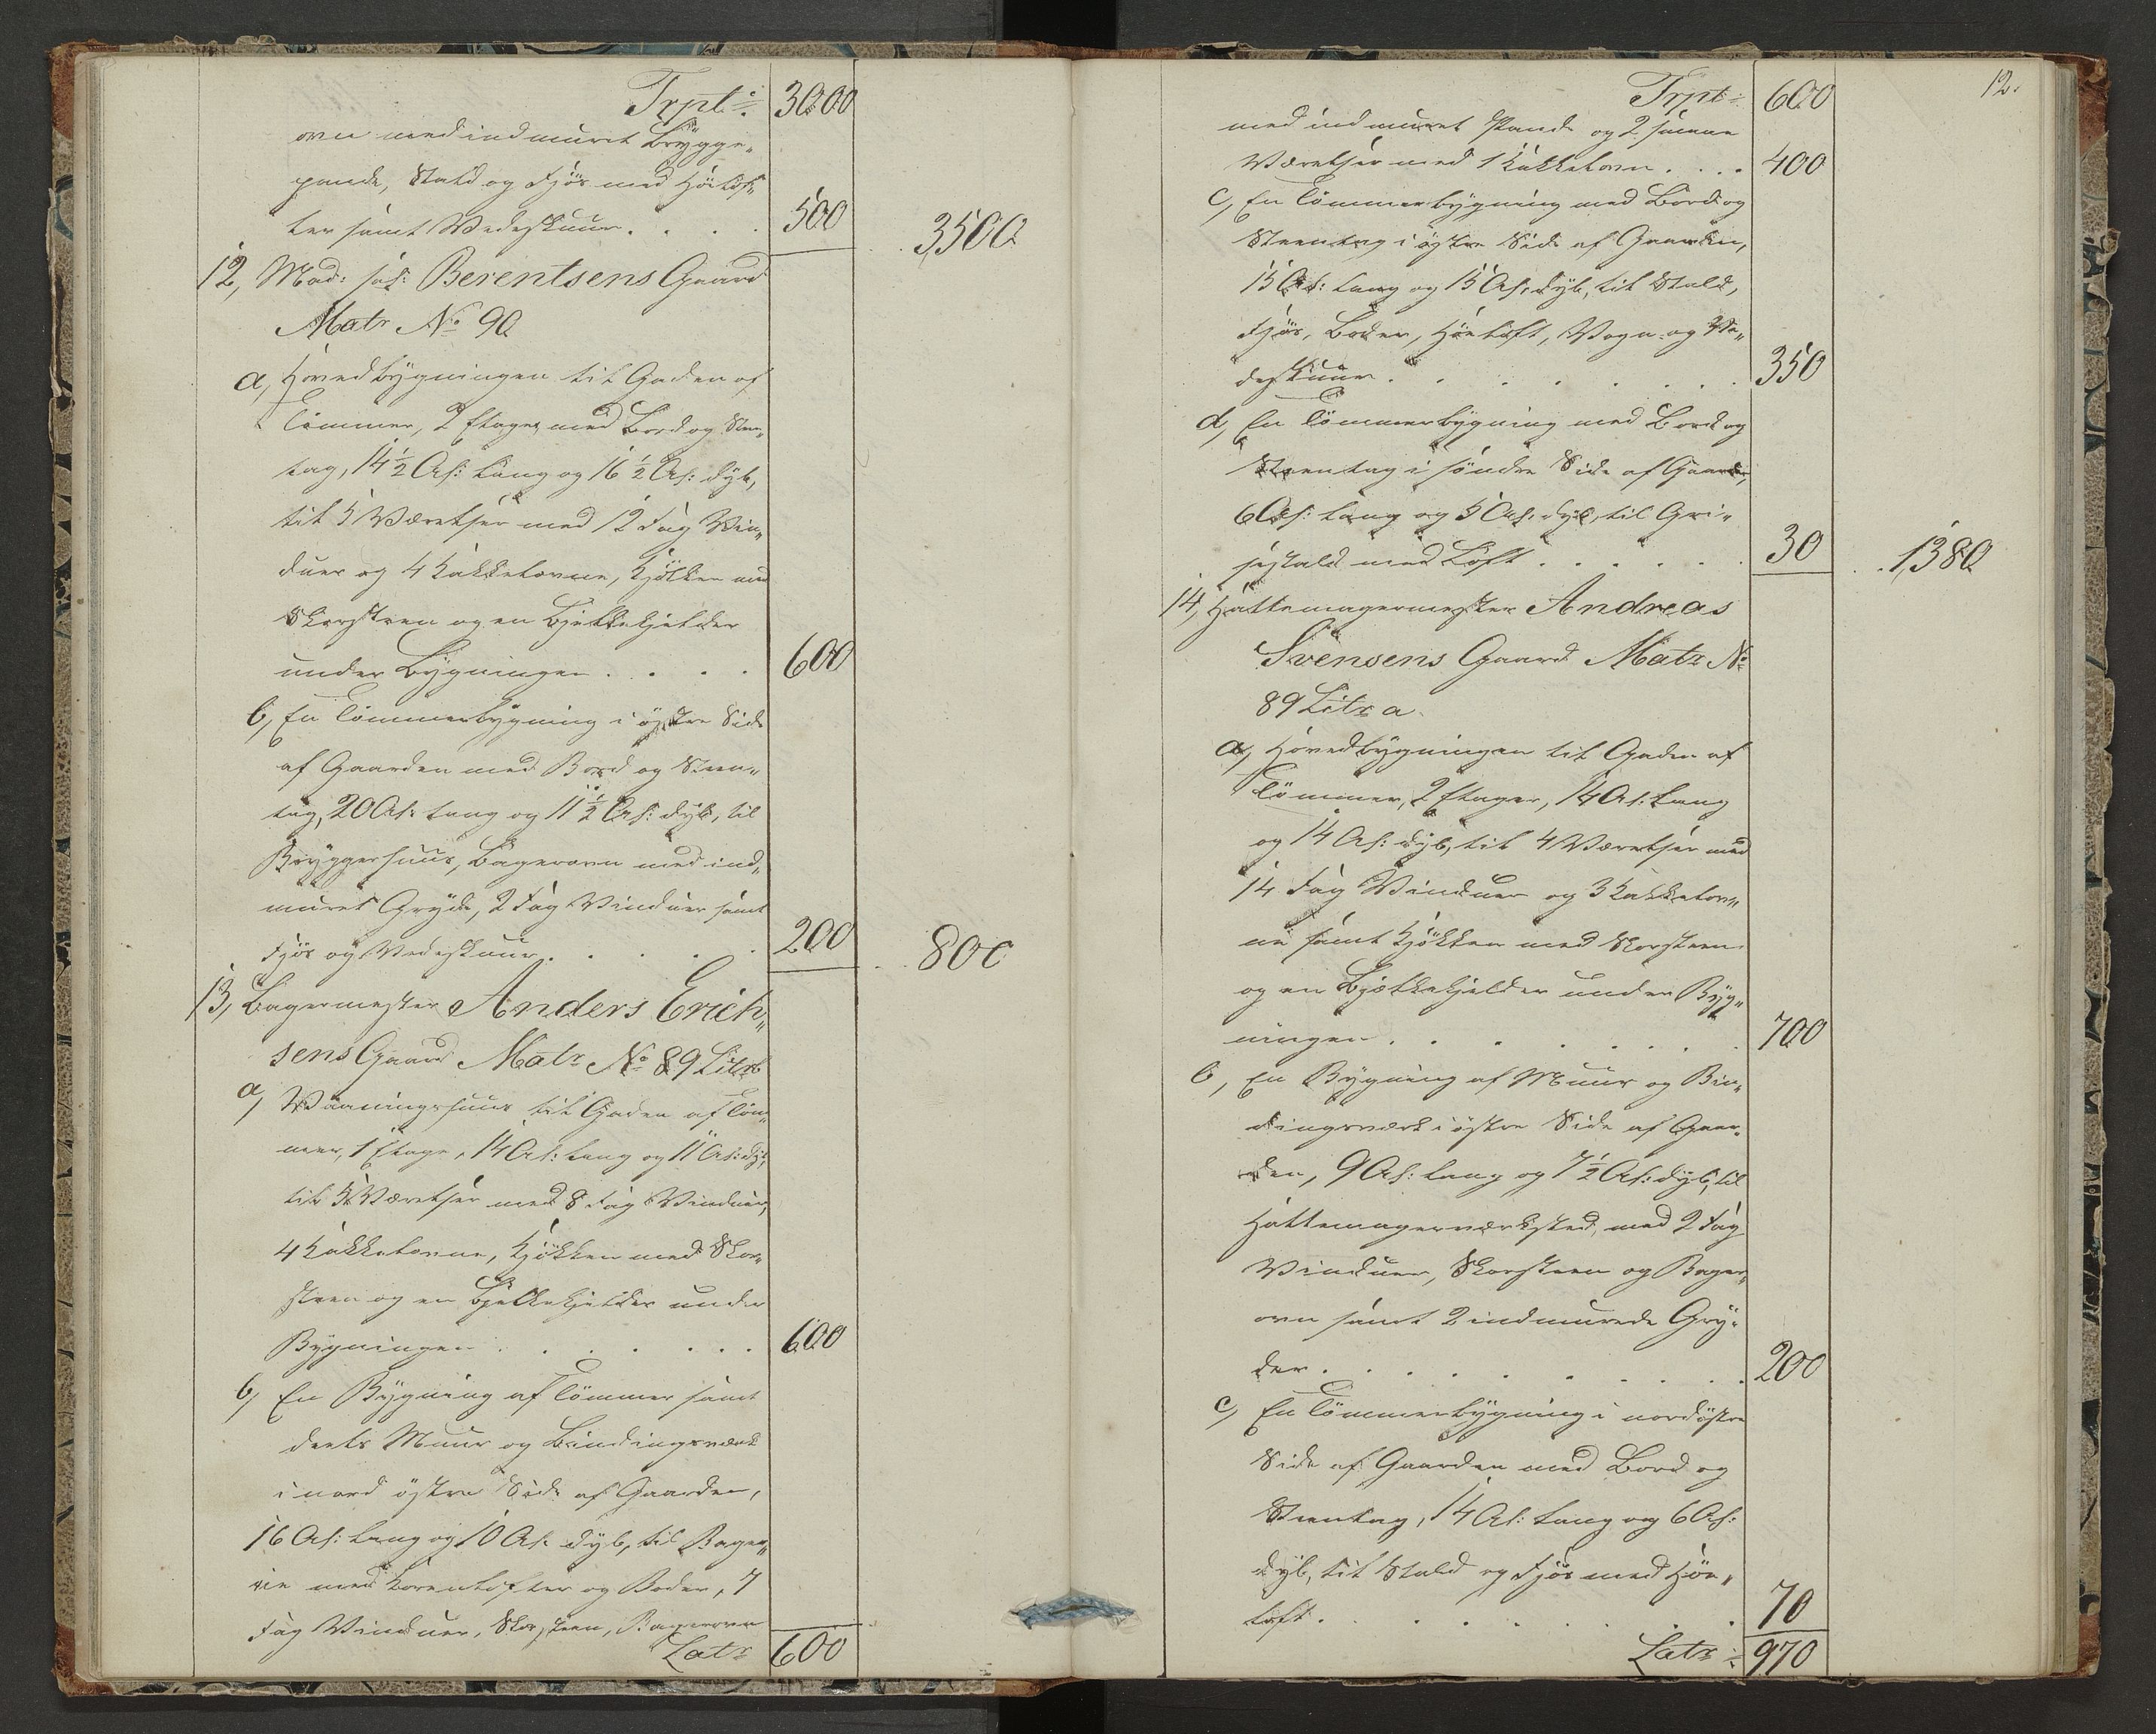 Trpt: 3000
ovn med indmuret Brygge„
pande, Stald og Fjös med Höelof„
ter samt Vedeskuur . . . . 500 3500
12, Mad: sal: Berentsens Gaard
Matr No 90
a, Hovedbygningen til Gaden af
Tömmer, 2 Etager med Bord og Steen„
tag, 14½ Al: lang og 16½ Al: dyb,
til 5 Værelser med 12 Fag Vin„
duer og 4 Kakkelovne, Kjökken med
Skorsteen og en Bjelkekjelder
under Bygningen . . . . 600
b, En Tömmerbygning i östre Side
af Gaarden med Bord og Steen„
tag, 20 Al: lang og 11½ Al: dyb, til
Bryggerhuus, Bagerovn med ind„
muret Gryde, 2 Fag Vinduer samt
Fjös og Vedeskuur . . . . 200 800
13, Bagermester Anders Erich„
sens Gaard Matr No 89 Litr b
a, Vaaningshuus til Gaden af Töm„
mer, 1 Etage, 14 Al: lang og 11 Al: dyb,
til 5 Værelser med 8 Fag Vinduer,
4 Kakkelovne, Kjökken med Skor„
steen og en Bjelkekjelder under
Bygningen . . . . . . . 600
b, En Bygning af Tömmer samt
deels Muur og Bindingsværk
i nord östre Side af Gaarden,
16 Al: lang og 10 Al: dyb, til Bager„
ie med Kornlofter og Boder, 7
Fag Vinduer, Skorsteen, Bagerovn
Latr 600
12.
Trpt: 600
med indmuret Pande og 2 smaae
Værelser med 1 Kakkelovn . . . . 400
c, En Tömmerbygning med Bord og
Steentag i östre Side af Gaarden,
15 Al: lang og 15 Al: dyb, til Stald,
Fjös, Boder, Höeloft, Vogn- og Ve„
deskuur . . . . . . . . 350
d, En Tömmerbygning med Bord og
Steentag i söndre Side af Gaarden,
6 Al: lang og 5 Al: dyb, til Gri„
sestald med Loft . . . . . . 30 1380
14, Hattemagermester Andreas
Svensens Gaard Matr No
89 Litr a.
a, Hovedbygningen til Gaden af
Tömmer, 2 Etager, 14 Al: lang
og 14 Al: dyb, til 4 Værelser med
14 Fag Vinduer og 3 Kakkelov„
ne samt Kjökken med Skorsteen
og en Bjelkekjelder under Byg„
ningen . . . . . . . . 700
b, En Bygning af Muur og Bin„
dingsværk i östre Side af Gaar„
den, 9 Al: lang og 7½ Al: dyb, til
Hattemagerværksted, med 2 Fag
Vinduer, Skorsteen og Bager„
ovn samt 2 indmurede Gry„
der . . . . . . . . . 200
c, En Tömmerbygning i nordöstre
Side af Gaarden med Bord og
Steentag, 14 Al: lang og 6 Al:
dyb, til Stald og Fjös med Höe„
loft . . . . . . . 70
Latr: 970